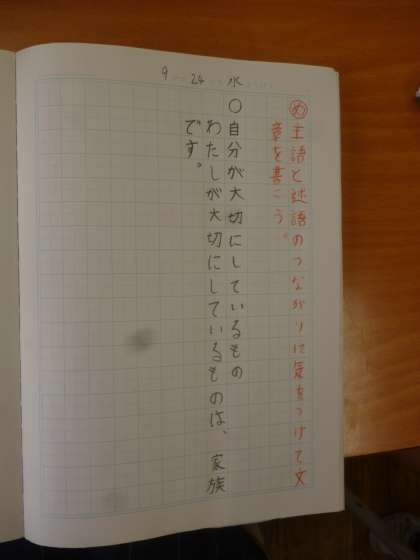 9 24 水
㋱主語と述語のつながりに気をつけて文
章を書こう。
○自分が大切にしているもの
わたしが大切にしているものは、家族
です。